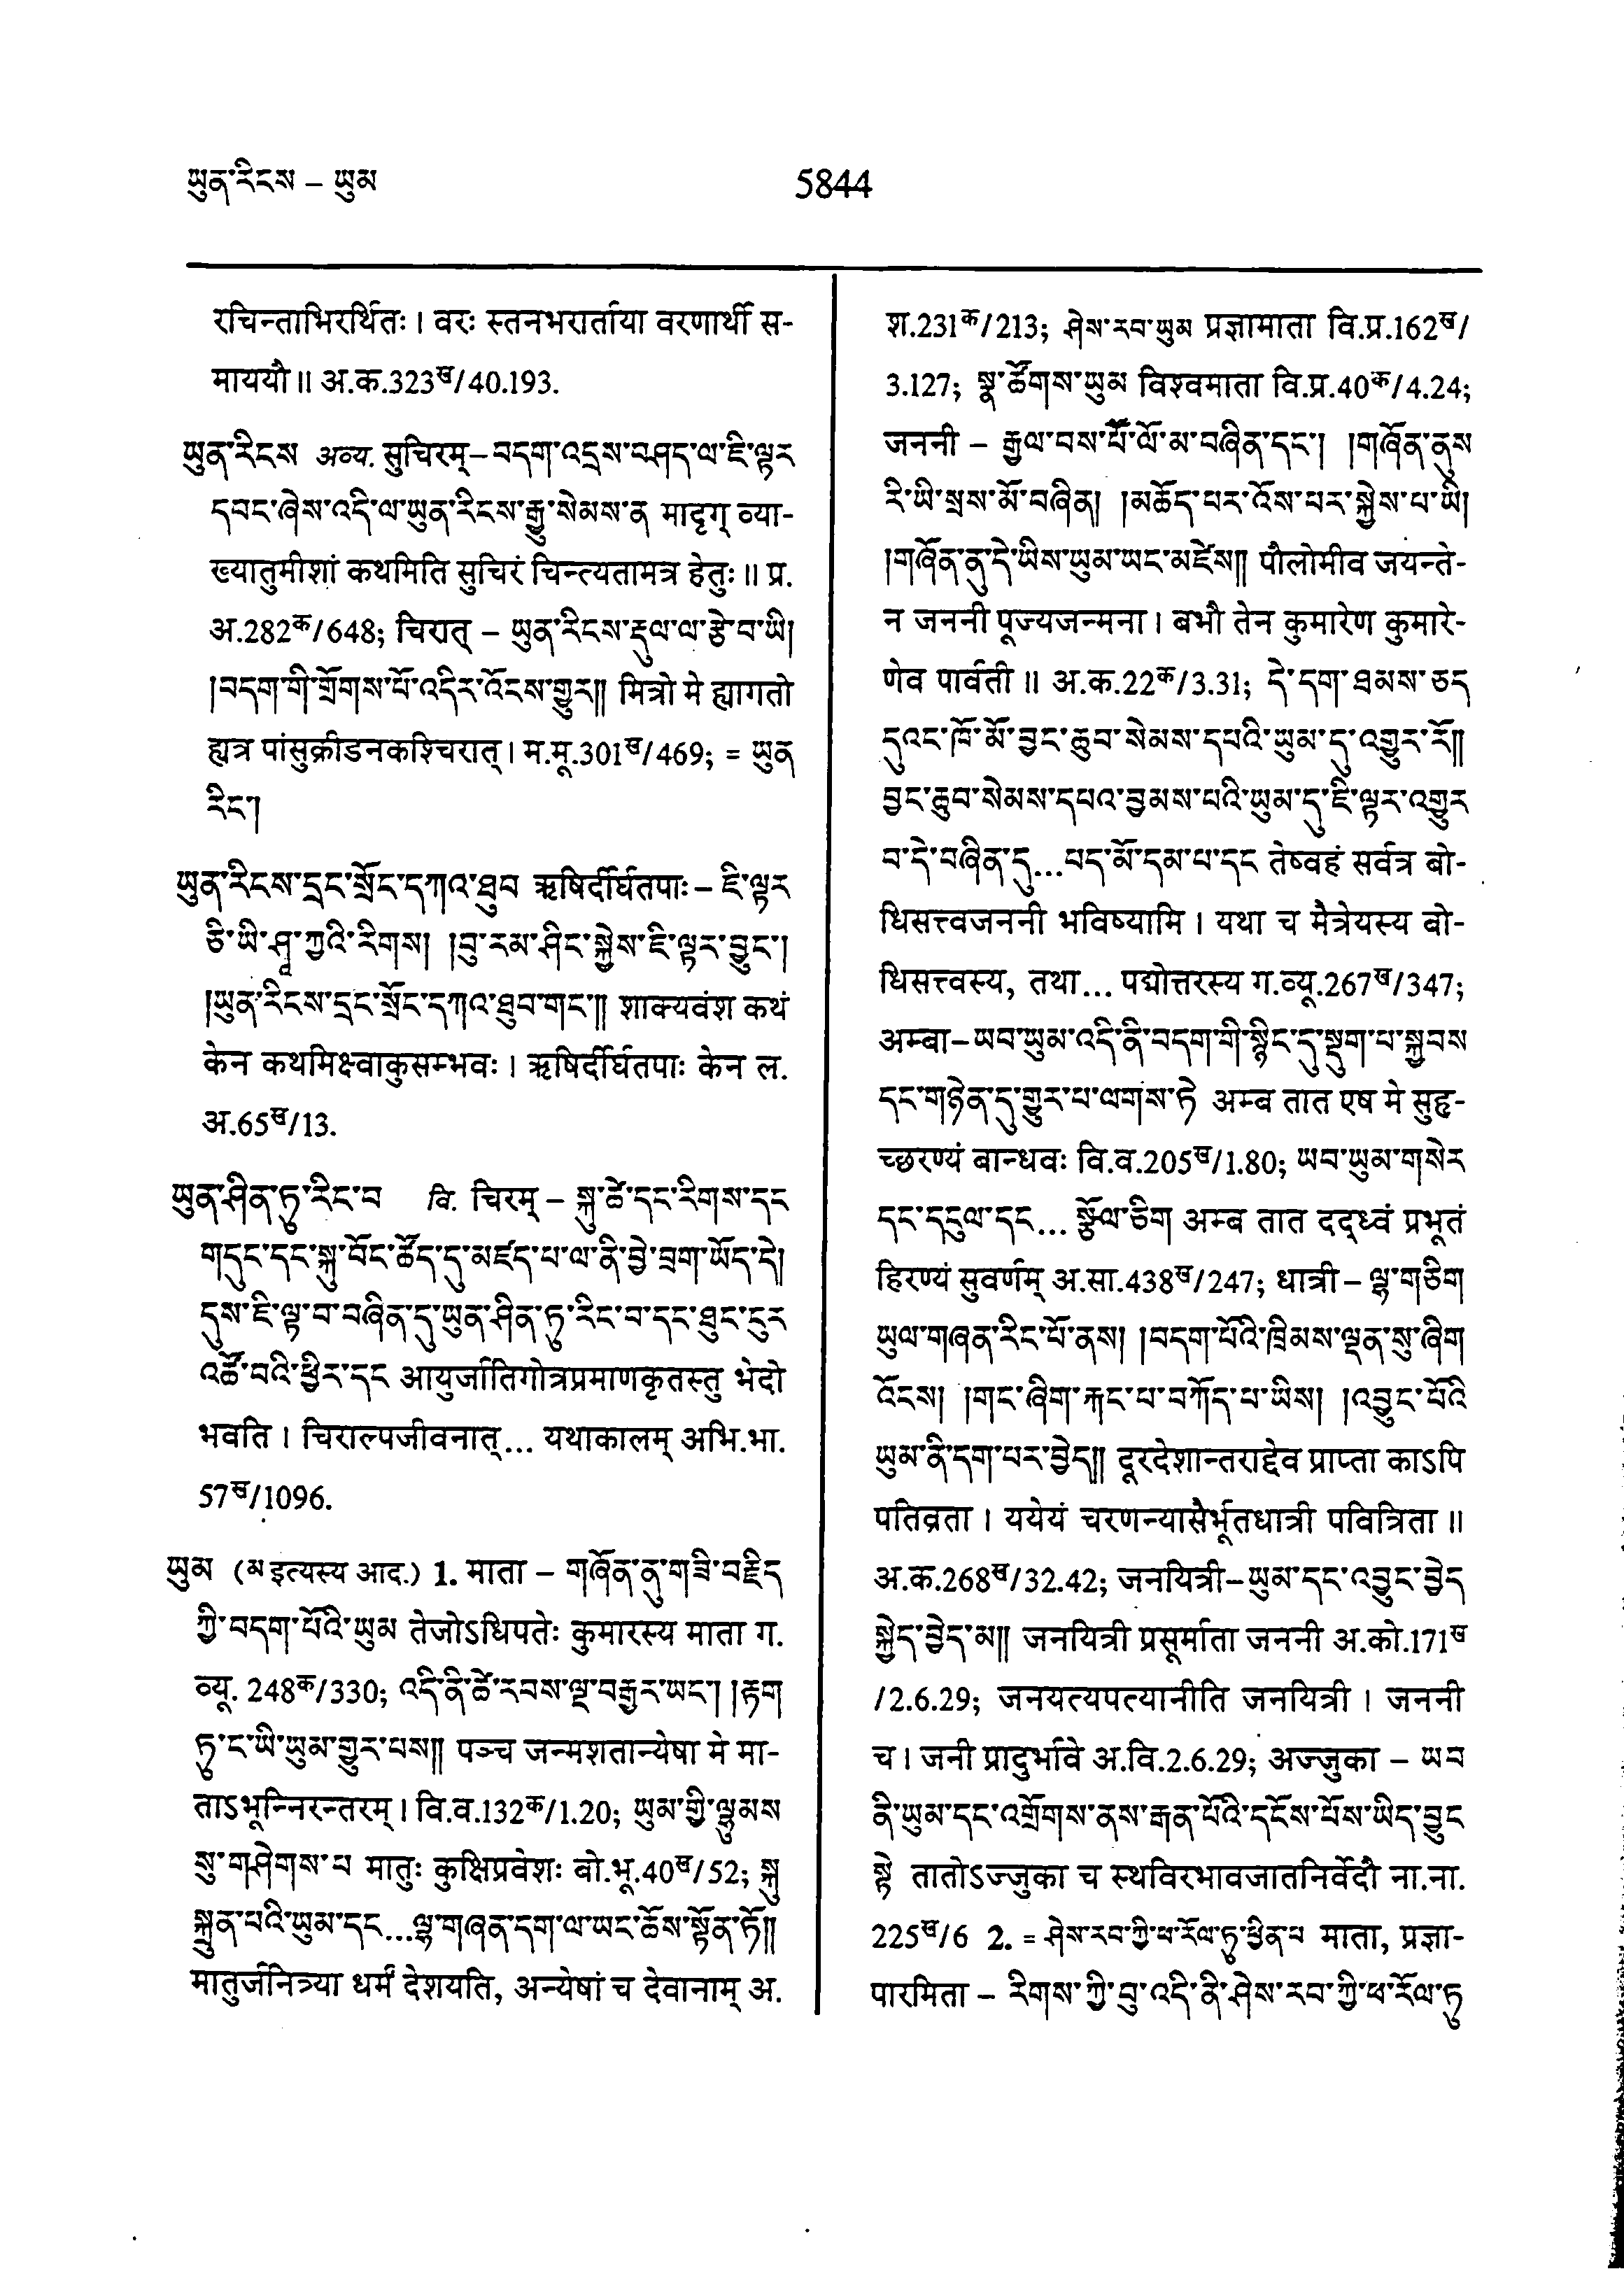 ཡུན་རིངས – ཡུམ
5844
रचिन्ताभिरर्थितः। वरः स्तनभरार्ताया वरणार्थी स-
माययौ॥ अ.क.323ख/40.193.
ཡུན་རིངས अव्य. सुचिरम्–བདག་འདྲས་བཤད་ལ་ཇི་ལྟར
དབང་ཞེས་འདི་ལ་ཡུན་རིངས་རྒྱུ་སེམས་ན मादृग् व्या-
ख्यातुमीशां कथमिति सुचिरं चिन्त्यतामत्र हेतुः॥ प्र.
अ.282क/648; चिरात् – ཡུན་རིངས་རྡུལ་ལ་རྩེ་བ་ཡི།
།བདག་གི་གྲོགས་པོ་འདིར་འོངས་གྱུར།། मित्रो मे ह्यागतो
ह्यत्र पांसुक्रीडनकश्चिरात्। म.मू.301ख/469; = ཡུན
རིང་།
ཡུན་རིངས་དྲང་སྲོང་དཀའ་ཐུབ ऋषिर्दीर्घतपाः – ཇི་ལྟར
ཅི་ཡི་ཤཱ་ཀྱའི་རིགས། །བུ་རམ་ཤིང་སྐྱེས་ཇི་ལྟར་བྱུང་།
།ཡུན་རིངས་དྲང་སྲོང་དཀའ་ཐུབ་གང་།། शाक्यवंश कथं
केन कथमिक्ष्वाकुसम्भवः। ऋषिर्दीर्घतपाः केन ल.
अ.65ख/13.
ཡུན་ཤིན་ཏུ་རིང་བ वि. चिरम् – སྐུ་ཚེ་དང་རིགས་དང
གདུང་དང་སྐུ་བོང་ཚོད་དུ་མཛད་པ་ལ་ནི་བྱེ་བྲག་ཡོད་དེ།
དུས་ཇི་ལྟ་བ་བཞིན་དུ་ཡུན་ཤིན་ཏུ་རིང་བ་དང་ཐུང་ངུར
འཚོ་བའི་ཕྱིར་དང आयुर्जातिगोत्रप्रमाणकृतस्तु भेदो
भवति। चिराल्पजीवनात्... यथाकालम् अभि.भा.
57ख/1096.
ཡུམ (མ इत्यस्य आद.) 1. माता – གཞོན་ནུ་གཟི་བརྗིད
ཀྱི་བདག་པོའི་ཡུམ तेजोऽधिपतेः कुमारस्य माता ग.
व्यू. 248क/330; འདི་ནི་ཚེ་རབས་ལྔ་བརྒྱར་ཡང་། །རྟག
ཏུ་ང་ཡི་ཡུམ་གྱུར་པས།། पञ्च जन्मशतान्येषा मे मा-
ताऽभून्निरन्तरम्। वि.व.132क/1.20; ཡུམ་གྱི་ལྷུམས
སུ་གཤེགས་པ मातुः कुक्षिप्रवेशः बो.भू.40ख/52; སྐུ
སྐྲུན་པའི་ཡུམ་དང...ལྷ་གཞན་དག་ལ་ཡང་ཆོས་སྟོན་ཏོ།།
मातुर्जनित्र्या धर्मं देशयति, अन्येषां च देवानाम् अ.
श.231क/213; ཤེས་རབ་ཡུམ प्रज्ञामाता वि.प्र.162ख/
3.127; སྣ་ཚོགས་ཡུམ विश्वमाता वि.प्र.40क/4.24;
जननी – རྒྱལ་བས་པཽ་ལོ་མ་བཞིན་དང་། །གཞོན་ནུས
རི་ཡི་སྲས་མོ་བཞིན། །མཆོད་པར་འོས་པར་སྐྱེས་པ་ཡི།
།གཞོན་ནུ་དེ་ཡིས་ཡུམ་ཡང་མཛེས།། पौलोमीव जयन्ते-
न जननी पूज्यजन्मना। बभौ तेन कुमारेण कुमारे-
णेव पार्वती॥ अ.क.22क/3.31; དེ་དག་ཐམས་ཅད
དུའང་ཁོ་མོ་བྱང་ཆུབ་སེམས་དཔའི་ཡུམ་དུ་འགྱུར་རོ།།
བྱང་ཆུབ་སེམས་དཔའ་བྱམས་པའི་ཡུམ་དུ་ཇི་ལྟར་འགྱུར
བ་དེ་བཞིན་དུ...པད་མོ་དམ་པ་དང तेष्वहं सर्वत्र बो-
धिसत्त्वजननी भविष्यामि। यथा च मैत्रेयस्य बो-
धिसत्त्वस्य, तथा... पद्मोत्तरस्य ग.व्यू.267ख/347;
अम्बा–ཡབ་ཡུམ་འདི་ནི་བདག་གི་སྙིང་དུ་སྡུག་པ་སྐྱབས
དང་གཉེན་དུ་གྱུར་པ་ལགས་ཏེ अम्ब तात एष मे सुहृ-
च्छरण्यं बान्धवः वि.व.205ख/1.80; ཡབ་ཡུམ་གསེར
དང་དངུལ་དང... སྩོལ་ཅིག अम्ब तात दद्ध्वं प्रभूतं
हिरण्यं सुवर्णम् अ.सा.438ख/247; धात्री – ལྷ་གཅིག
ཡུལ་གཞན་རིང་པོ་ནས། །བདག་པོའི་ཁྲིམས་ལྡན་སུ་ཞིག
འོངས། །གང་ཞིག་རྐང་པ་བཀོད་པ་ཡིས། །འབྱུང་པོའི
ཡུམ་ནི་དག་པར་བྱེད།། दूरदेशान्तराद्देव प्राप्ता काऽपि
पतिव्रता। ययेयं चरणन्यासैर्भूतधात्री पवित्रिता॥
अ.क.268ख/32.42; जनयित्री–ཡུམ་དང་འབྱུང་བྱེད
སྐྱེད་བྱེད་མ།། जनयित्री प्रसूर्माता जननी अ.को.171ख
/2.6.29; जनयत्यपत्यानीति जनयित्री। जननी
च। जनी प्रादुर्भावे अ.वि.2.6.29; अज्जुका – ཡབ
ནི་ཡུམ་དང་འགྲོགས་ནས་རྒན་པོའི་དངོས་པོས་ཡིད་བྱུང
སྟེ तातोऽज्जुका च स्थविरभावजातनिर्वेदौ ना.ना.
225ख/6 2. = ཤེས་རབ་ཀྱི་ཕ་རོལ་ཏུ་ཕྱིན་པ माता, प्रज्ञा-
पारमिता – རིགས་ཀྱི་བུ་འདི་ནི་ཤེས་རབ་ཀྱི་ཕ་རོལ་ཏུ